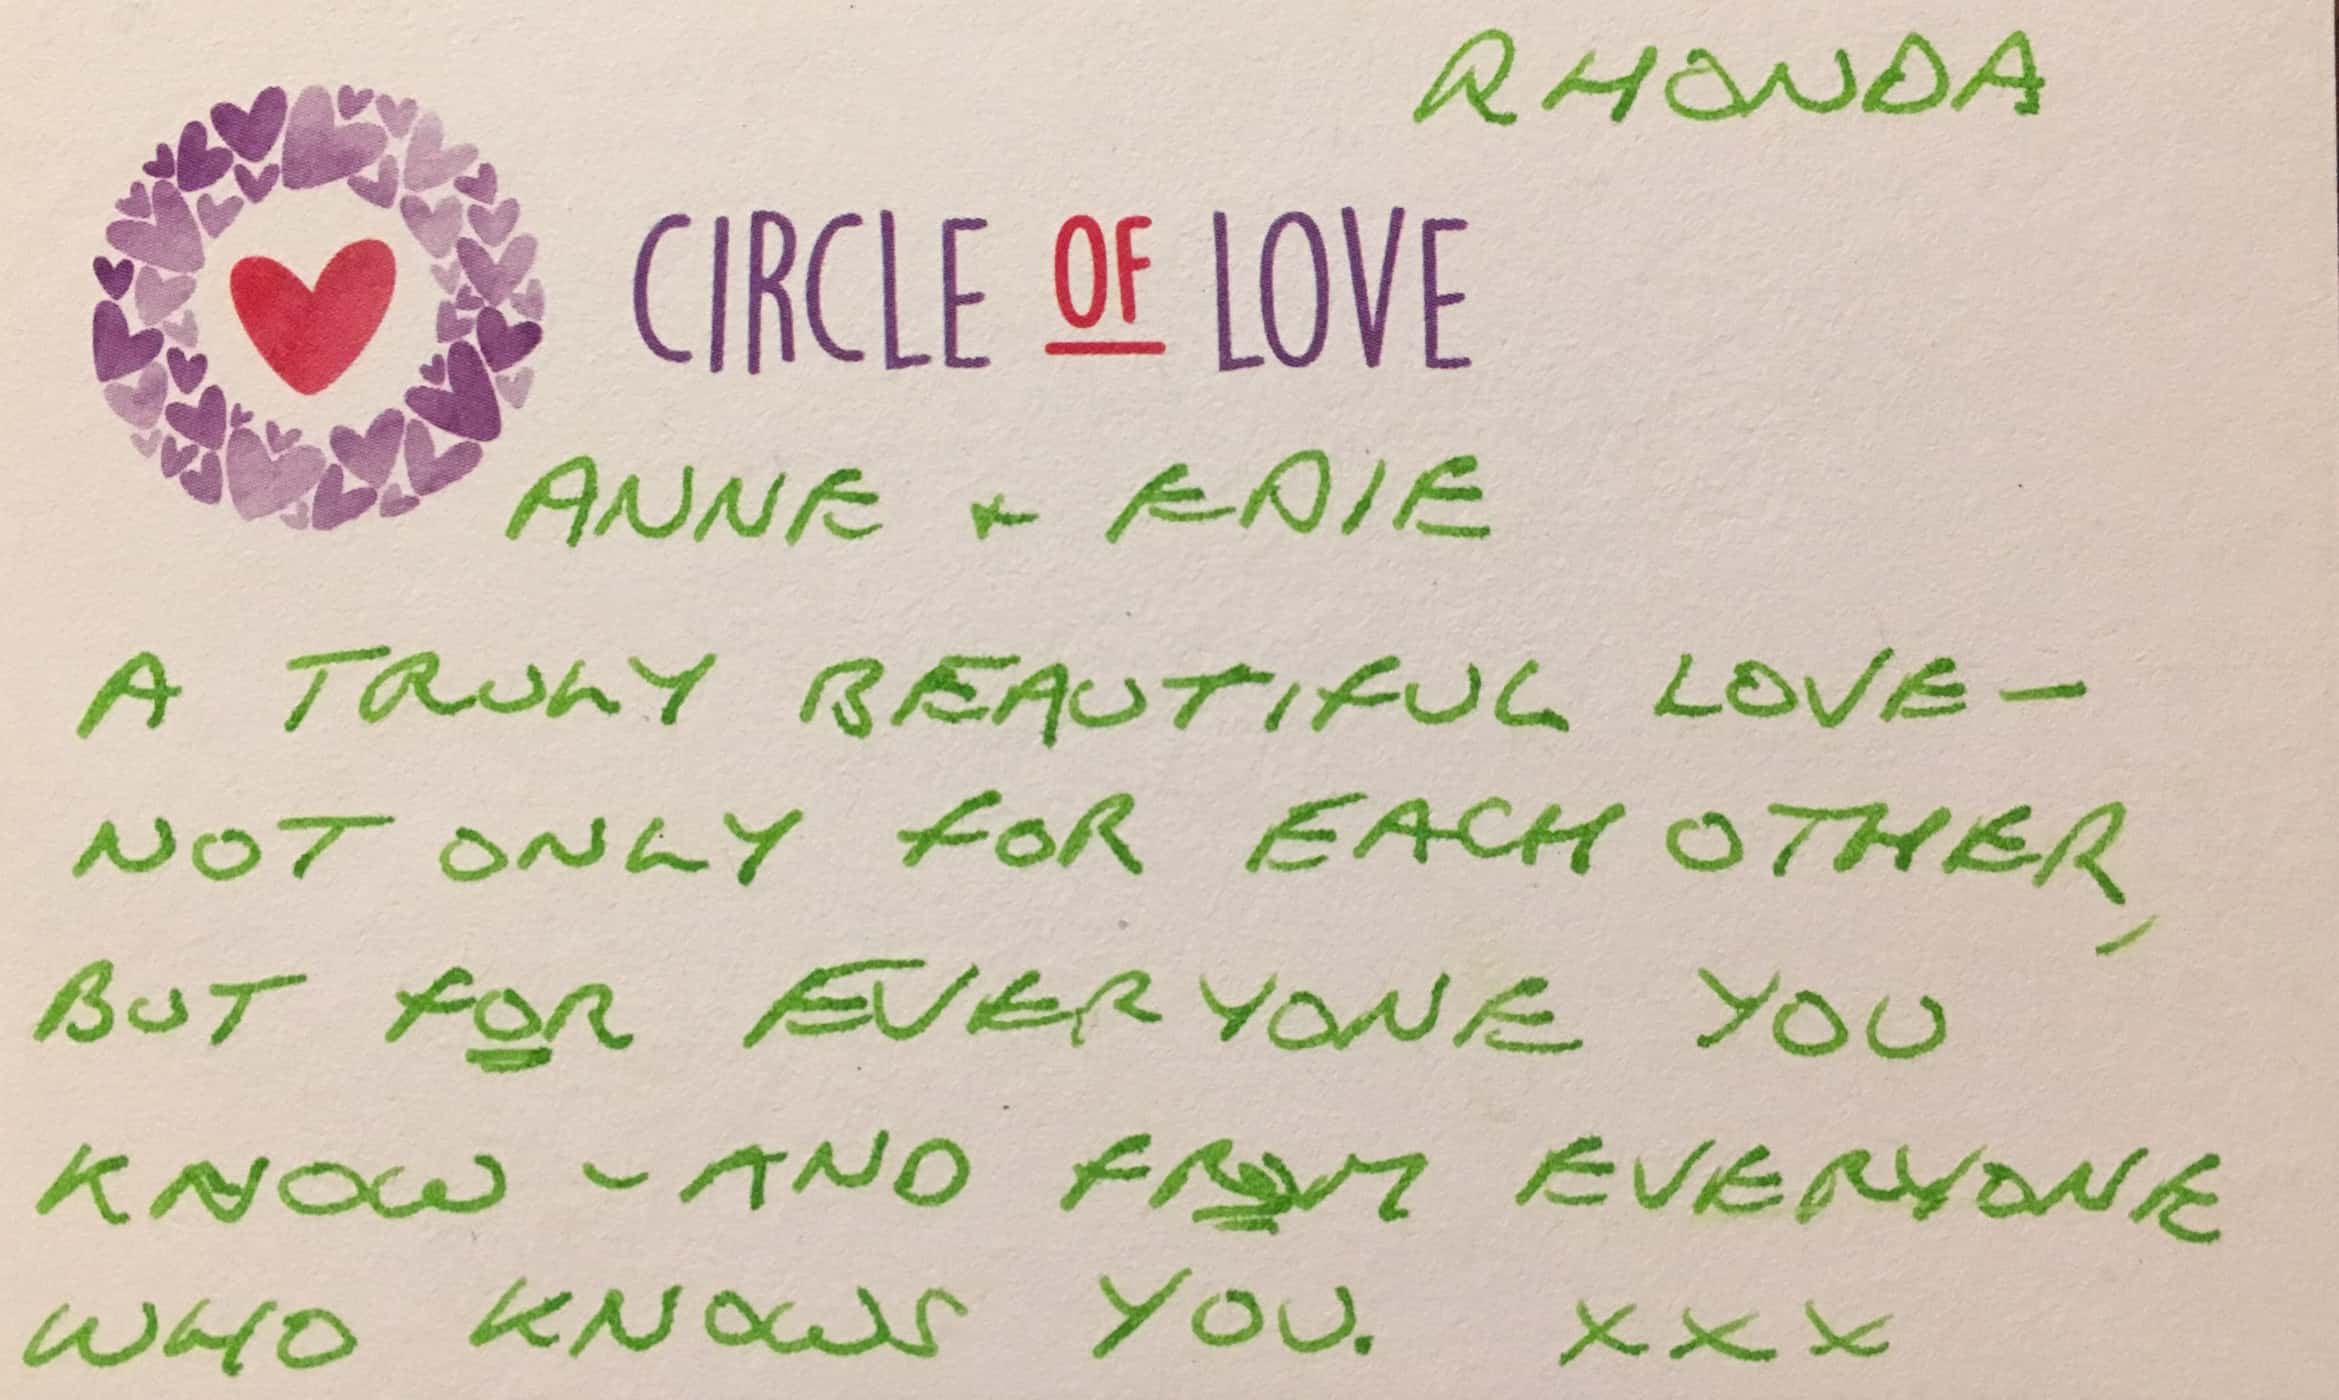 RHONDA
CIRCLE OF LOVE
ANNE + EDIE
A TRULY BEAUTIFUL LOVE -
NOT ONLY FOR EACH OTHER,
BUT FOR EVERYONE YOU
KNOW - AND FROM EVERYONE
WHO KNOWS YOU. XXX